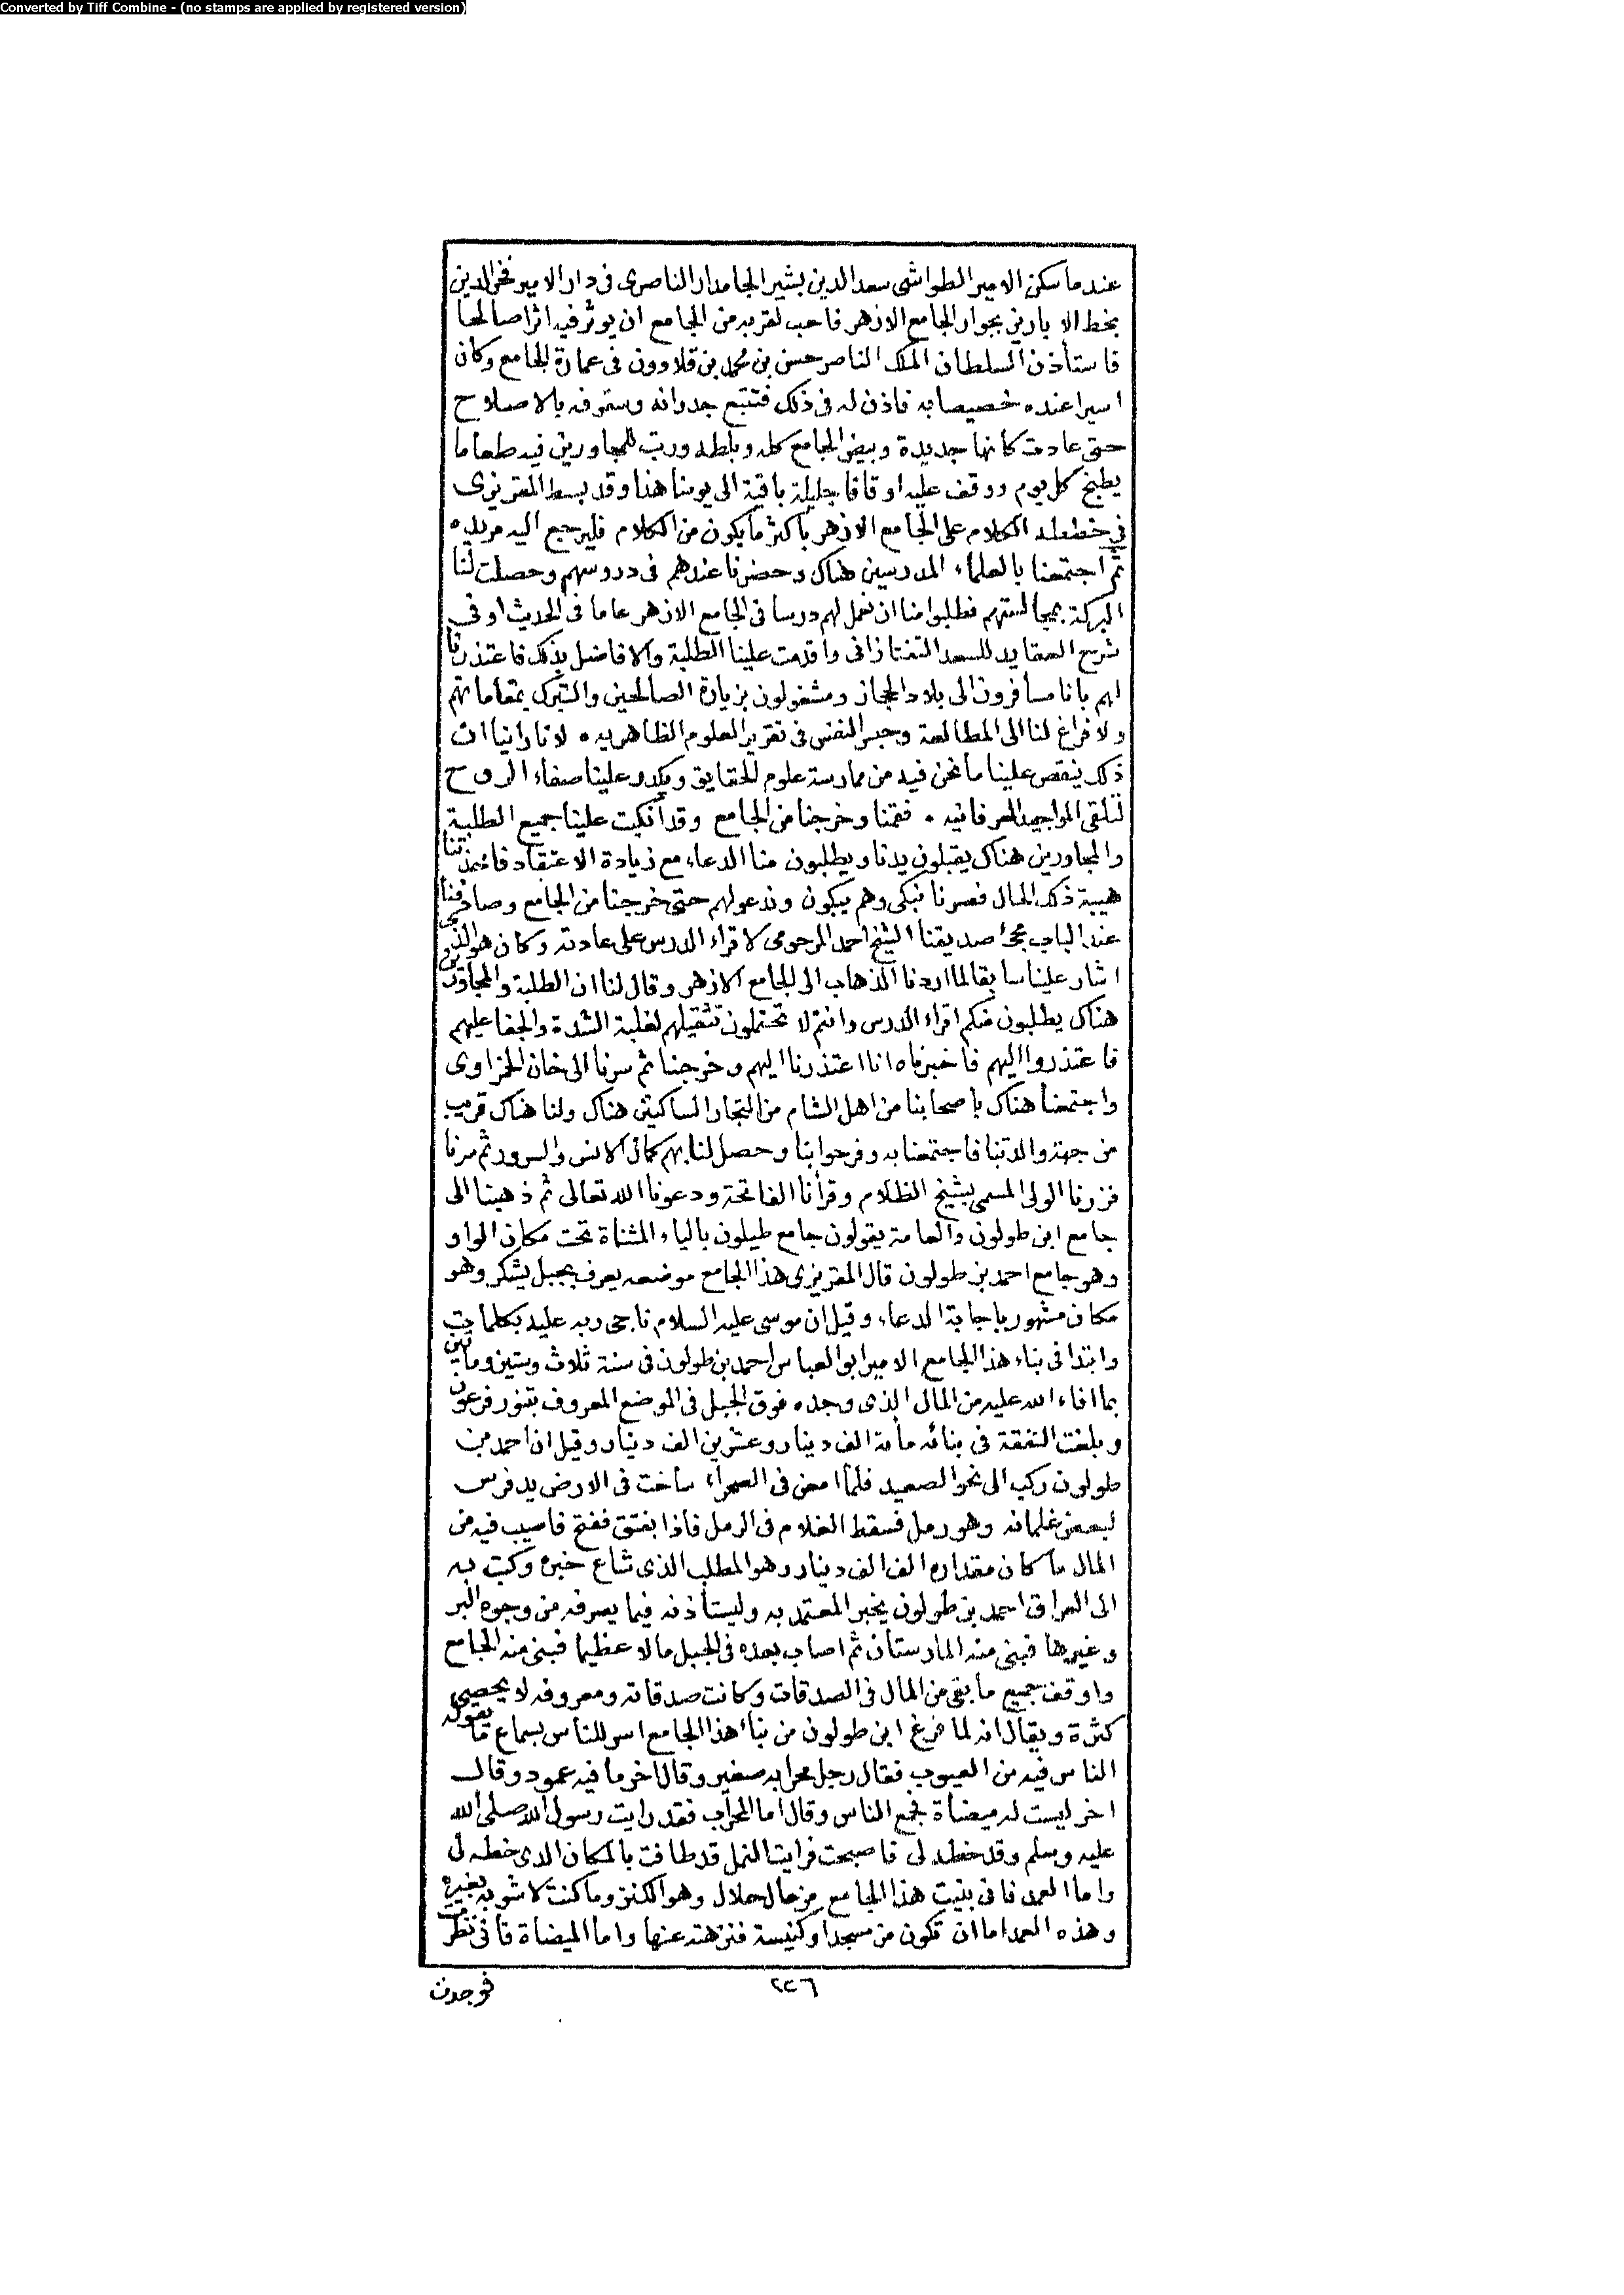 Converted by Tiff Combine - (no stamps are applied by registered version)
عندما سكن الامير الطواشى سعد الدين بشير الجامدار الناصرى فى دار الامير فخر الدين
بخط الابارين بجوار الجامع الازهر فاحب لقربه من الجامع ان يوثر فيه اثرا صالحا
فاستأذن السلطان الملك الناصر حسن بن محمد بن قلاوون فى عمارة الجامع وكان
اسيرا عنده خصيصا به فاذن له فى ذلك فتتبع جدرانه وسقوفه بالاصلاح
حتى عادت كانها جديدة وبيض الجامع كله وبلطه ورتب للمجاورين فيه طعاما
يطبخ كل يوم ووقف عليه اوقافا جليلة باقية الى يومنا هذا وقد بسط المقريزى
فى خططه الكلام على الجامع الازهر باكثر ما يكون من الكلام فليرجع اليه مريده
ثم اجتمعنا بالعلماء المدرسين هناك وحضرنا عندهم فى دروسهم وحصلت لنا
البركة بمجالستهم فطلبوا منا ان نعمل لهم درسا فى الجامع الازهر عاما فى الحديث او فى
شرح العقايد للسعد التفتازانى واقدمت علينا الطلبة والافاضل بذلك فاعتذرنا
لهم بانا مسافرون الى بلاد الحجاز ومشغولون بزيارة الصالحين والتبرك بمقاماتهم
ولا فراغ لنا الى المطالعة وحبس النفس فى تقرير العلوم الظاهريه لانا راينا ان
ذلك ينقص علينا ما نحن فيه من ممارسة علوم الحقايق ويكدر علينا صفاء الروح
لتلقى المواجيد العرفانيه فقمنا وخرجنا من الجامع وقد انكبت علينا جميع الطلبة
والمجاورين هناك يقبلون يدنا ويطلبون منا الدعاء مع زيادة الاعتقاد فاخذتنا
هيبة ذلك الحال فصرنا نبكى وهم يبكون وندعو لهم حتى خرجنا من الجامع وصادفنا
عند الباب مجئ صديقنا الشيخ احمد المرحومى لاقراء الدرس على عادته وكان هو الذى
اشار علينا سابقا لما اردنا الذهاب الى الجامع الازهر وقال لنا ان الطلبة والمجاورين
هناك يطلبون منكم اقراء الدرس وانتم لا تحتملون تثقيلهم لغلبة الشدة والجفا عليهم
فاعتذروا اليهم فاخبرناه انا اعتذرنا اليهم وخرجنا ثم سرنا الى خان الحزاوى
واجتمعنا هناك باصحابنا من اهل الشام من التجار الساكنين هناك ولنا هناك قريب
من جهة والدتنا فاجتمعنا به وفرحوا بنا وحصل لنا بهم كمال الانس والسرور ثم سرنا
فزرنا الولى المسمى بشيخ الظلام وقرأنا الفاتحة ودعونا الله تعالى ثم ذهبنا الى
جامع ابن طولون والعامة يقولون جامع طيلون بالياء المثناة تحت مكان الواو
وهو جامع احمد بن طولون قال المقريزى هذا الجامع موضعه يعرف بجبل يشكر وهو
مكان مشهور باجابة الدعاء وقيل ان موسى عليه السلام ناجى ربه عليه بكلمات
وابتدا فى بناء هذا الجامع الامير ابو العباس احمد بن طولون فى سنة ثلاث وستين ومايتين
بما افاء الله عليه من المال الذى وجده فوق الجبل فى الموضع المعروف بتنور فرعون
وبلغت النفقة فى بنائه مأمة الف دينار وعشرين الف دينار وقيل ان احمد بن
طولون ركب الى نحو الصعيد فلما امعن فى الصحراء ساخت فى الارض يد فرس
لبعض غلمانه وهو رمل فسقط الغلام فى الرمل فاذا بفتق ففتح فاصيب فيه من
المال ما كان مقداره الف الف دينار وهو المطلب الذى شاع خبره وكتب به
الى العراق احمد بن طولون يخبر المعتمد به وليستأذنه فيما يصرفه من وجوه البر
وغيرها فبنى منه المارستان ثم اصاب بعده فى الجبل مالا عظيما فبنى منه الجامع
واوقف جميع ما بقى من المال فى الصدقات وكانت صدقاته ومعروفه لا يحصى
كثرة ويقال انه لما فرغ ابن طولون من بناء هذا الجامع اسر للناس بسماع ما يقوله
الناس فيه من العيوب فقال رجل محرابه صغير وقال اخر ما فيه عمود وقال
اخر ليست له ميضاة فجمع الناس وقال اما المحراب فقد رايت رسول الله صلى الله
عليه وسلم وقد خطه لى فاصبحت فرايت النمل قد طافت بالمكان الذى خطه لى
واما العمد فانى بنيت هذا الجامع من مال حلال وهو الكنز وما كنت لاشوبه بغيره
وهذه العمد اما ان تكون من مسجد او كنيسة فنزهته عنها واما الميضاة فانى نظرت
٢٢٦
فوجدت